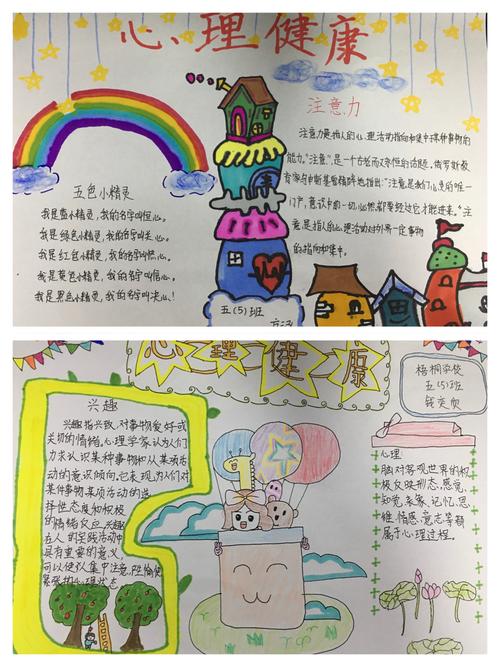 心理健康
注意力
注意力是指人的心理活动指向和集中于某种事物的
能力。“注意”,是一个古老而又永恒的话题。俄罗斯教
育家乌申斯基曾精辟地指出:“注意是我们心灵的唯一
门户,意识中的一切,必然都要经过它才能进来。”注
意是指人的心理活动对外界一定事物
的指向和集中。
五色小精灵
我是蓝小精灵,我的名字叫恒心。
我是绿色小精灵,我的名字叫关心。
我是红色小精灵,我的名字叫
我是黄色小精灵,我的名字叫信心。
我是黑色小精灵,我的名字叫决心!
五(5)班
心理健康
梧桐学校
五(5)班
钱奕
兴趣
兴趣指兴致,对事物爱好或
关切的情绪。心理学家认为人们
力求认识某种事物和从某项活
动的意识倾向。它表现为人们对
某件事物、某项活动的选
择性态度和积极
的情绪反应。兴趣
在人的实践活动中
具有重要的意义,
可以使人集中注意,产生愉快
紧张的心理状态
心理
脑对客观世界的积
极反映形态,感觉、
知觉、表象、记忆、思
维、情感、意志等都
属于心理过程。